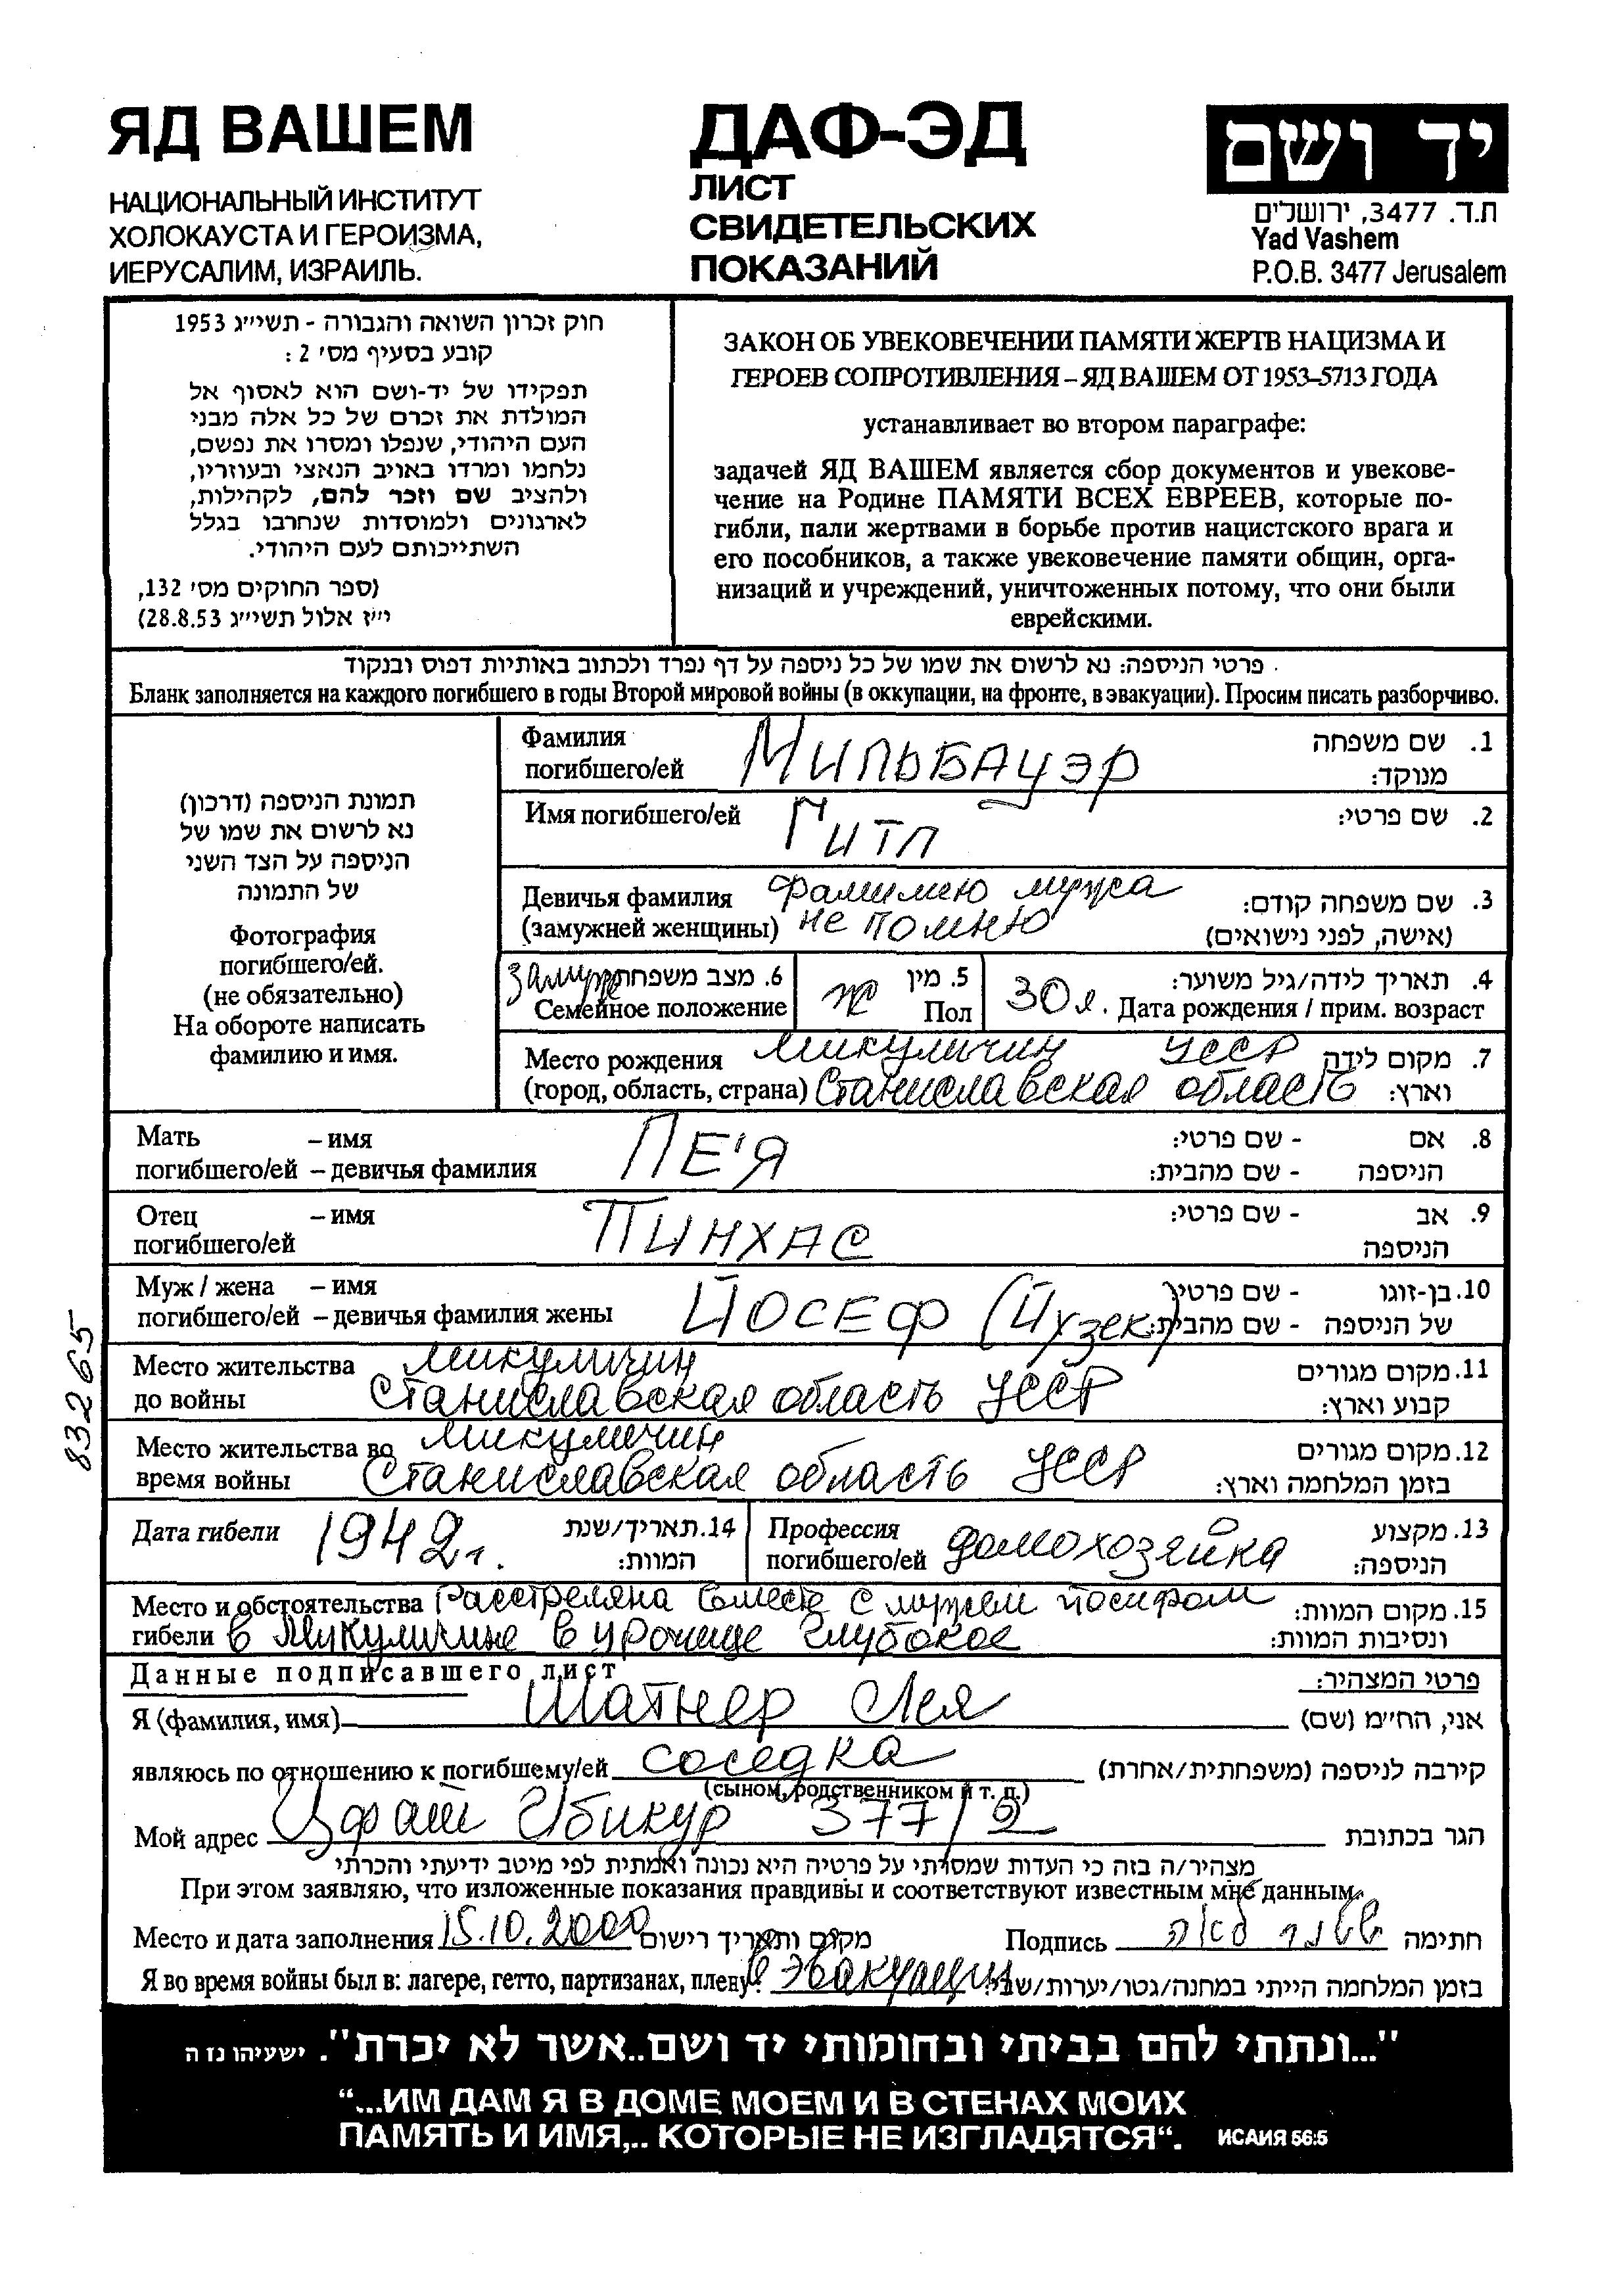 ЯД ВАШЕМ
НАЦИОНАЛЬНЫЙ ИНСТИТУТ
ХОЛОКАУСТА И ГЕРОИЗМА,
ИЕРУСАЛИМ, ИЗРАИЛЬ.
ДАФ-ЭД
ЛИСТ
СВИДЕТЕЛЬСКИХ
ПОКАЗАНИЙ
יד ושם
ת.ד. 3477, ירושלים
Yad Vashem
P.O.B. 3477 Jerusalem
חוק זכרון השואה והגבורה - תשי״ג 1953
קובע בסעיף מס׳ 2 :
תפקידו של יד-ושם הוא לאסוף אל
המולדת את זכרם של כל אלה מבני
העם היהודי, שנפלו ומסרו את נפשם,
נלחמו ומרדו באויב הנאצי ובעוזריו,
ולהציב שם וזכר להם, לקהילות,
לארגונים ולמוסדות שנחרבו בגלל
השתייכותם לעם היהודי.
(ספר החוקים מס׳ 132,
י״ז אלול תשי״ג 28.8.53)
ЗАКОН ОБ УВЕКОВЕЧЕНИИ ПАМЯТИ ЖЕРТВ НАЦИЗМА И
ГЕРОЕВ СОПРОТИВЛЕНИЯ – ЯД ВАШЕМ ОТ 1953–5713 ГОДА
устанавливает во втором параграфе:
задачей ЯД ВАШЕМ является сбор документов и увекове-
чение на Родине ПАМЯТИ ВСЕХ ЕВРЕЕВ, которые по-
гибли, пали жертвами в борьбе против нацистского врага и
его пособников, а также увековечение памяти общин, орга-
низаций и учреждений, уничтоженных потому, что они были
еврейскими.
פרטי הניספה: נא לרשום את שמו של כל ניספה על דף נפרד ולכתוב באותיות דפוס ובנקוד
Бланк заполняется на каждого погибшего в годы Второй мировой войны (в оккупации, на фронте, в эвакуации). Просим писать разборчиво.
תמונת הניספה (דרכון)
נא לרשום את שמו של
הניספה על הצד השני
של התמונה
Фотография
погибшего/ей.
(не обязательно)
На обороте написать
фамилию и имя.
Фамилия погибшего/ей МИЛЬБАУЭР 1. שם משפחה
מנוקד:
Имя погибшего/ей ГИТЛ 2. שם פרטי:
Девичья фамилия Фамилию мужа 3. שם משפחה קודם:
(замужней женщины) не помню (אישה, לפני נישואים)
замуж 6. מצב משפחתי
Семейное положение
ж 5. מין
Пол
30 л. 4. תאריך לידה/גיל משוער:
Дата рождения / прим. возраст
Место рождения Микуличин УССР 7. מקום לידה
(город, область, страна) Станиславская область וארץ:
Мать – имя ЛЕ'Я 8. אם - שם פרטי:
погибшего/ей – девичья фамилия הניספה - שם מהבית:
Отец – имя ПИНХАС 9. אב - שם פרטי:
погибшего/ей הניספה
Муж / жена – имя ЙОСЕФ (Йузек) 10. בן-זוגו - שם פרטי:
погибшего/ей – девичья фамилия жены של הניספה - שם מהבית:
Место жительства Микуличин 11. מקום מגורים
до войны Станиславская область УССР קבוע וארץ:
Место жительства во Микуличин 12. מקום מגורים
время войны Станиславская область УССР בזמן המלחמה וארץ:
Дата гибели 1942г. 14. תאריך/שנת
המוות:
Профессия домохозяйка 13. מקצוע
погибшего/ей הניספה:
Место и обстоятельства Расстреляна вместе с мужем Йосифом 15. מקום המוות:
гибели в Микуличине в урочище Глубокое ונסיבות המוות:
Данные подписавшего лист פרטי המצהיר:
Я (фамилия, имя) Шатнер Лея אני, הח״מ (שם)
являюсь по отношению к погибшему/ей соседка קירבה לניספה (משפחתית/אחרת)
(сыном, родственником и т. п.)
Мой адрес Цфат Ибикур 377/2 הגר בכתובת
מצהיר/ה בזה כי העדות שמסרתי על פרטיה היא נכונה ואמתית לפי מיטב ידיעתי והכרתי
При этом заявляю, что изложенные показания правдивы и соответствуют известным мне данным.
Место и дата заполнения 15.10.2000 מקום ותאריך רישום Подпись שטנר לאה חתימה
Я во время войны был в: лагере, гетто, партизанах, плену: в эвакуации בזמן המלחמה הייתי במחנה/גטו/יערות/שבי:
83265
"...ונתתי להם בביתי ובחומותי יד ושם..אשר לא יכרת". ישעיהו נז ה
“...ИМ ДАМ Я В ДОМЕ МОЕМ И В СТЕНАХ МОИХ
ПАМЯТЬ И ИМЯ,.. КОТОРЫЕ НЕ ИЗГЛАДЯТСЯ“. ИСАИЯ 56:5